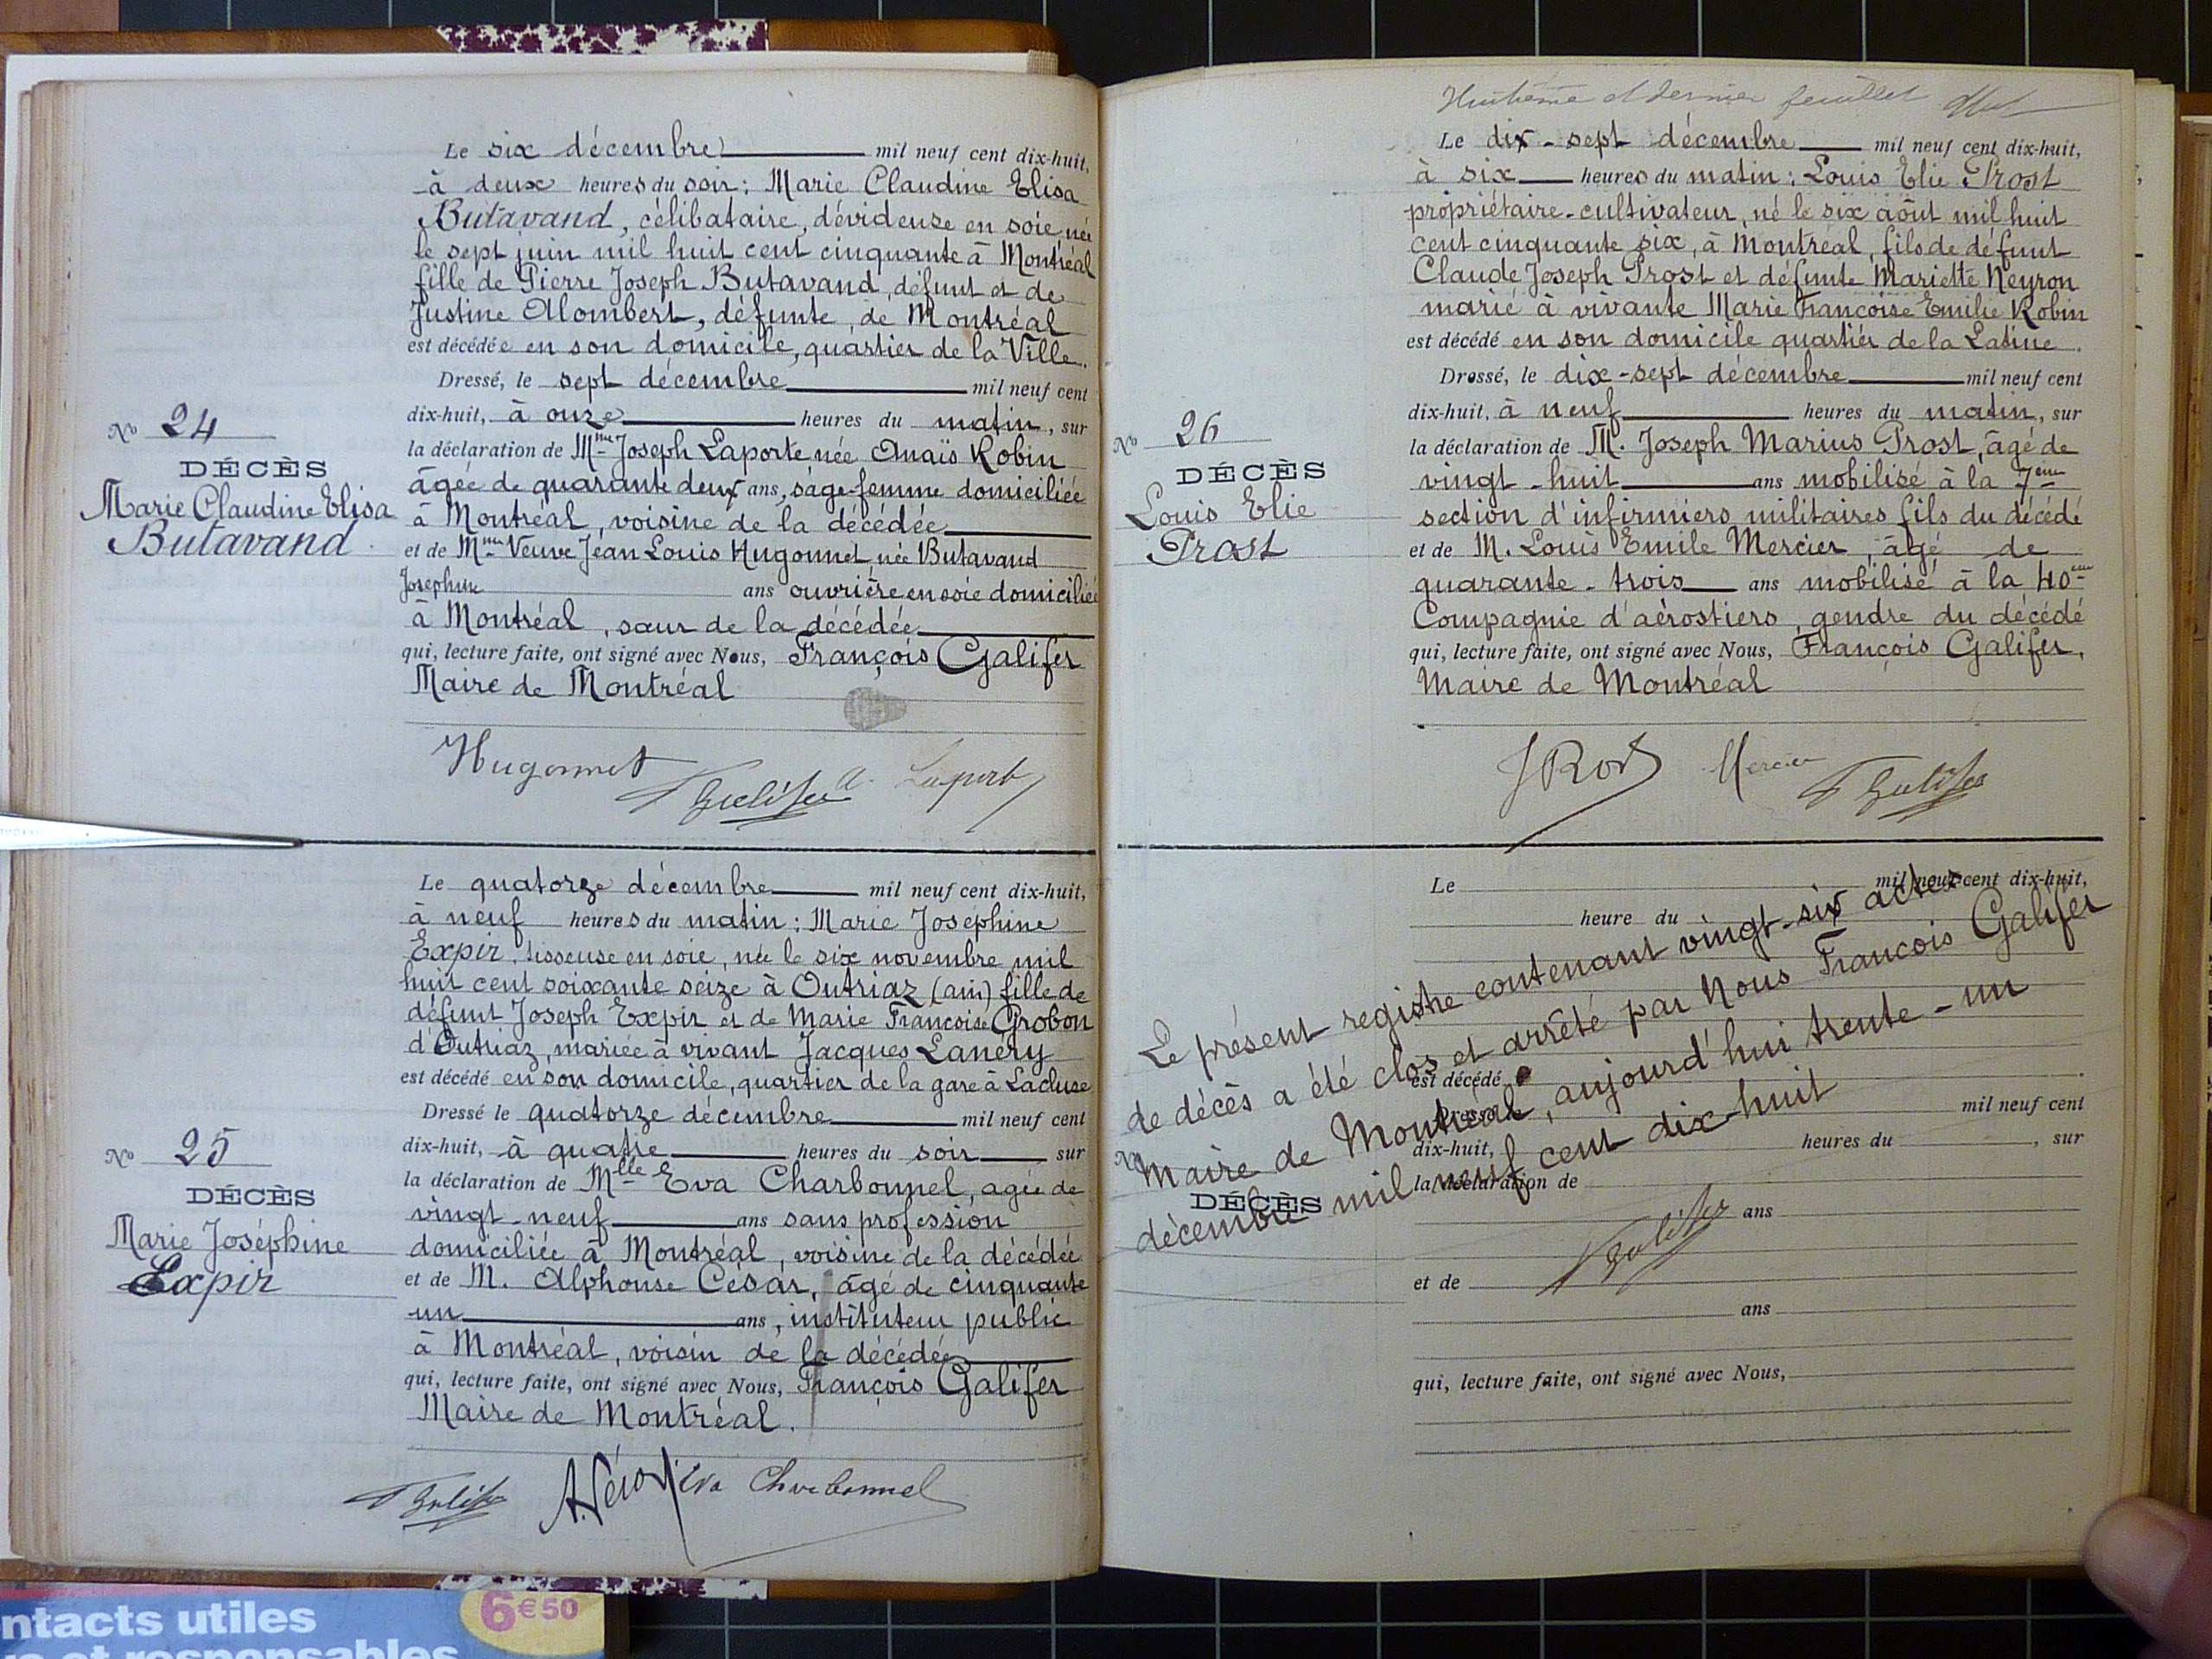 Le six décembre mil neuf cent dix-huit,
à deux heures du soir: Marie Claudine Elisa
Butavand, célibataire, dévideuse en soie, née
le sept juin mil huit cent cinquante à Montréal
fille de Pierre Joseph Butavand, défunt et de
Justine Alombert, défunte, de Montréal
est décédée en son domicile, quartier de la Ville.
Dressé, le sept décembre mil neuf cent
dix-huit, à onze heures du matin, sur
la déclaration de Mme Joseph Laporte née Anaïs Robin
âgée de quarante deux ans, sage-femme domiciliée
à Montréal, voisine de la décédée
et de Mme Veuve Jean Louis Hugonnet née Butavand
Josephine ans ouvrière en soie domiciliée
à Montréal, sœur de la décédée
qui, lecture faite, ont signé avec Nous, François Galifer
Maire de Montréal
No 24
DÉCÈS
Marie Claudine Elisa
Butavand
Hugonnet F Galifer A. Laporte
Le quatorze décembre mil neuf cent dix-huit,
à neuf heures du matin: Marie Joséphine
Expir, tisseuse en soie, née le six novembre mil
huit cent soixante seize à Outriaz (ain) fille de
défunt Joseph Expir et de Marie Françoise Grobon
d'Outriaz, mariée à vivant Jacques Lanéry
est décédé en son domicile, quartier de la gare à Lacluse
Dressé le quatorze décembre mil neuf cent
dix-huit, à quatre heures du soir sur
la déclaration de Mlle Eva Charbonnel, agée de
vingt-neuf ans sans profession
domiciliée à Montréal, voisine de la décédée
et de M. Alphonse César, âgé de cinquante
un ans, instituteur public
à Montréal, voisin de la décédée
qui, lecture faite, ont signé avec Nous, François Galifer
Maire de Montréal.
No 25
DÉCÈS
Marie Joséphine
Expir
F Galifer Eva Charbonnel
Huitième et dernier feuillet
Le dix-sept décembre mil neuf cent dix-huit,
à six heures du matin: Louis Elie Prost
propriétaire-cultivateur, né le six août mil huit
cent cinquante six, à Montréal, fils de défunt
Claude Joseph Prost et défunte Mariette Neyron
marié à vivante Marie Françoise Emilie Robin
est décédé en son domicile quartier de la Latine.
Dressé, le dix-sept décembre mil neuf cent
dix-huit, à neuf heures du matin, sur
la déclaration de M. Joseph Marius Prost, âgé de
vingt-huit ans mobilisé à la 7ème
section d'infirmiers militaires fils du décédé
et de M. Louis Emile Mercier, âgé de
quarante-trois ans mobilisé à la 40ème
Compagnie d'aérostiers, gendre du décédé
qui, lecture faite, ont signé avec Nous, François Galifer,
Maire de Montréal
No 26
DÉCÈS
Louis Elie
Prost
Mercier F Galifer
Le mil neuf cent dix-huit,
heure du
Le présent registre contenant vingt-six actes
de décès a été clos et arrêté par Nous François Galifer
Maire de Montréal, aujourd'hui trente-un
décembre mil neuf cent dix-huit
est décédé
Dressé, le mil neuf cent
dix-huit, heures du , sur
la déclaration de
ans
et de
ans
qui, lecture faite, ont signé avec Nous,
No
DÉCÈS
F Galifer
ntacts utiles
6€50
et responsables